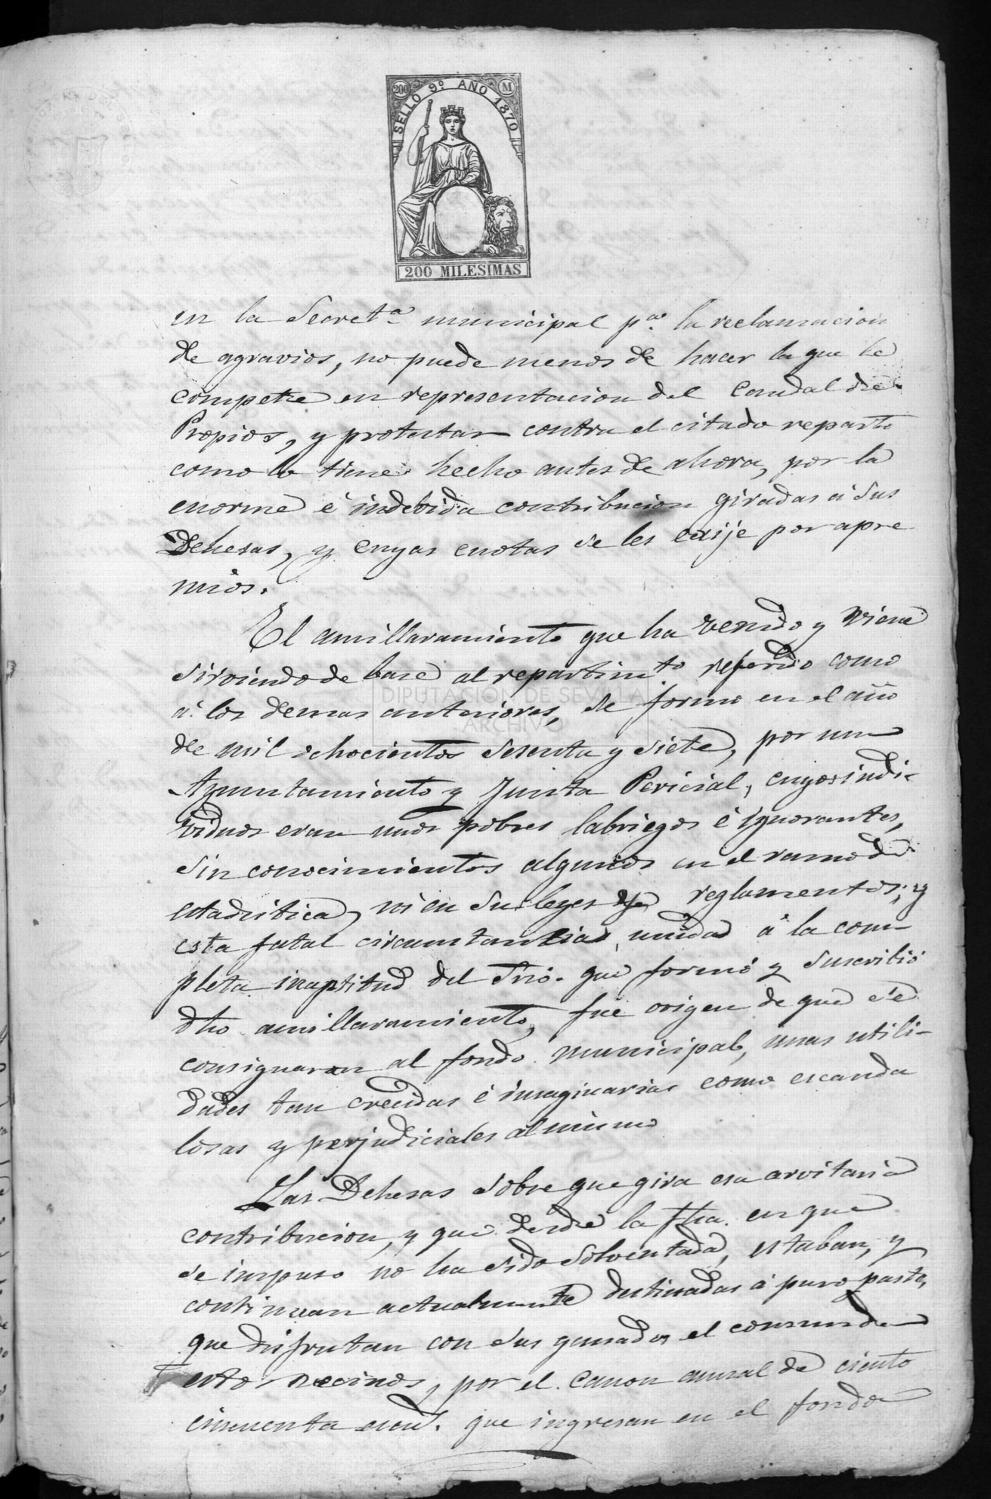 200 SELLO 9º AÑO 1870 M
200 MILESIMAS
en la Secretª municipal pª la reclamacion
de agravios, no puede menos de hacer la que le
compete en representacion del Caudal de
Propios, y protestar contra el citado reparto
como lo tiene hecho antes de ahora, por la
enorme é indebida contribucion giradas á sus
Dehesas, y cuyas cuotas se les exije por apre
mios.
El amillaramiento que ha venido y viene
sirviendo de base al repartimto referido como
á los demas anteriores, se formó en el año
de mil ochocientos sesenta y siete, por un
Ayuntamiento y Junta Pericial, cuyos indi-
viduos eran unos pobres labriegos é ignorantes,
sin conocimientos algunos en el ramo de
estadistica, ni en sus leyes y reglamentos; y
esta fatal circunstancia, unida á la com-
pleta inaptitud del Srio. que formó y suscribió
dho amillaramiento, fue origen de que se
consignaran al fondo municipal, unas utili-
dades tan crecidas é imaginarias como escanda
losas y perjudiciales al mismo
Las Dehesas sobre que gira esa arvitaria
contribucion, y que desde la fha. en que
se impuso no ha sido solventada, estaban, y
continuan actualmente destinadas á puro pasto,
que disfrutan con sus ganados el comun de
estos vecinos, por el canon anual de ciento
cincuenta escud. que ingresan en el fondo
DIPUTACIÓN DE SEVILLA
ARCHIVO